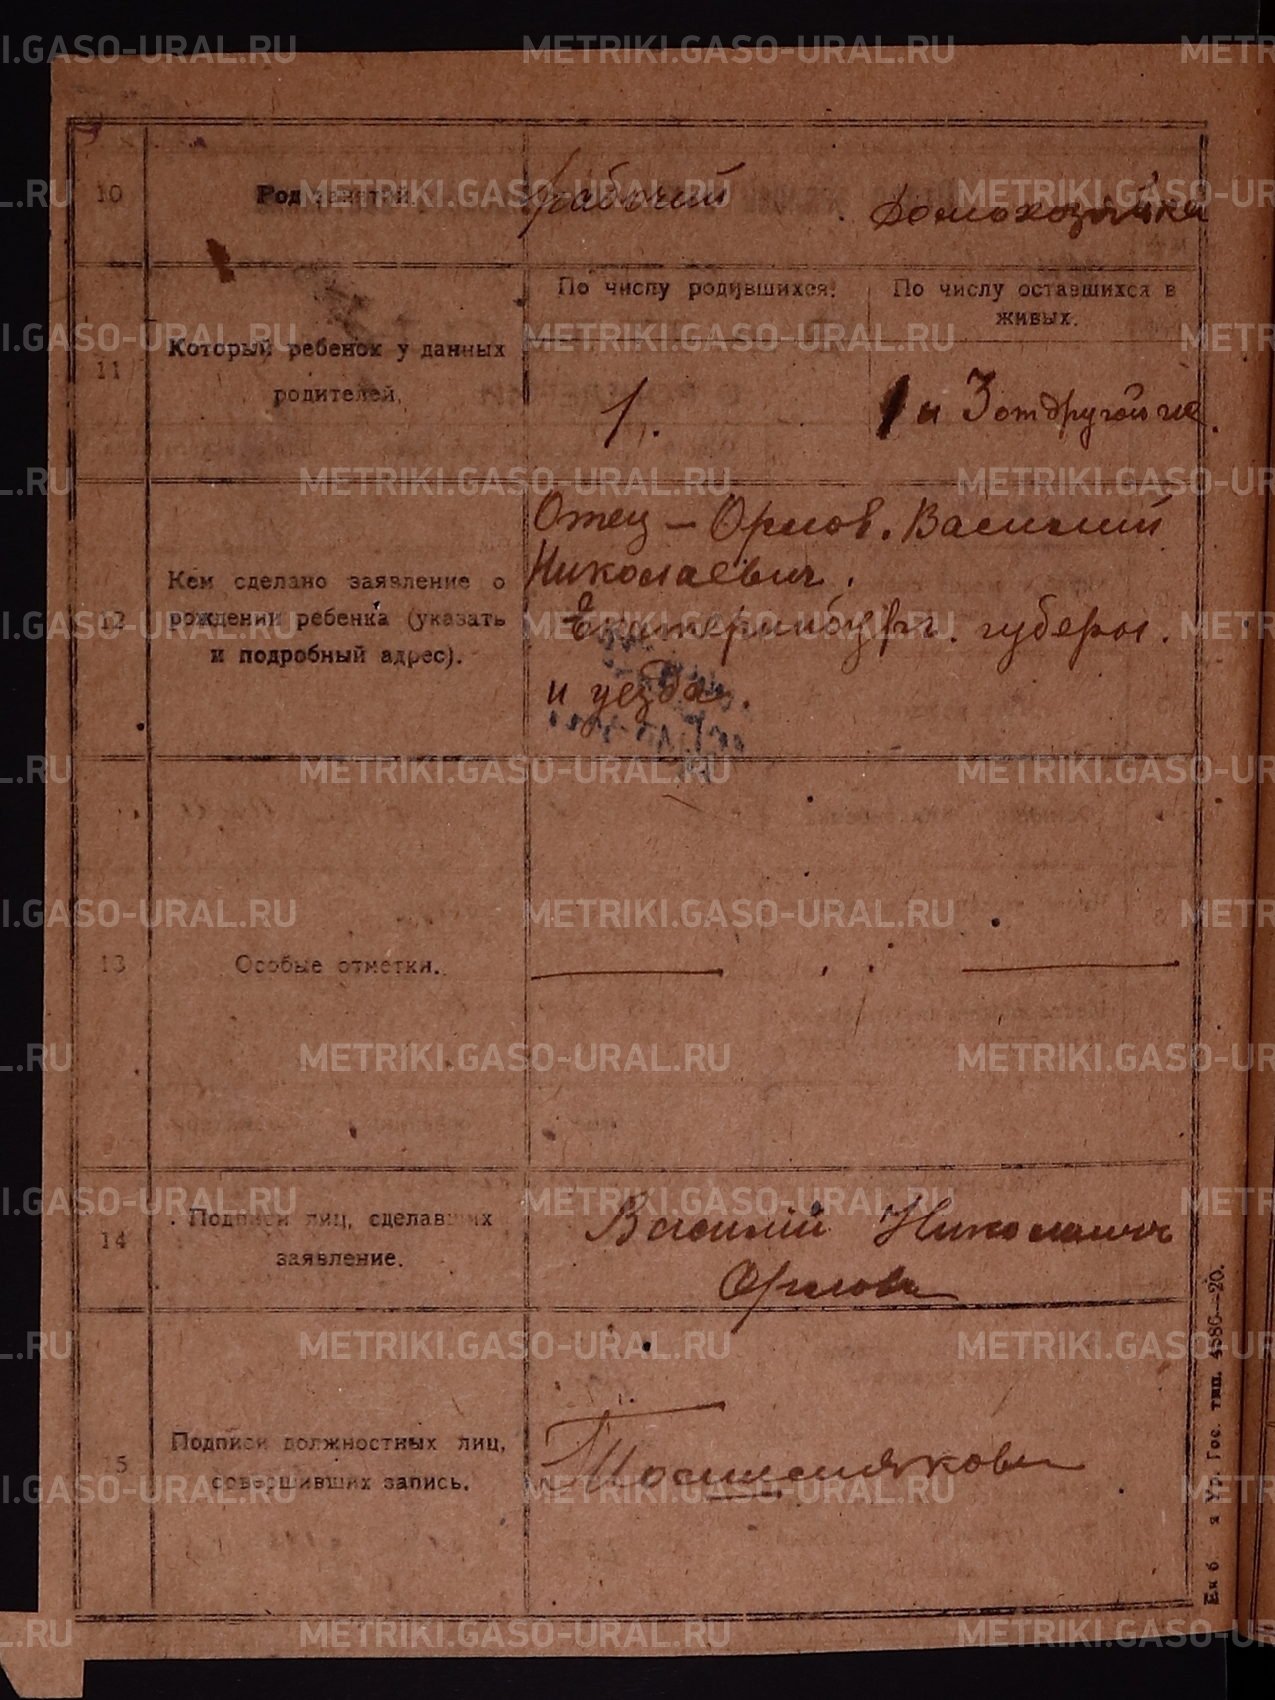 METRIKI.GASO-URAL.RU
10 Род занятий. рабочий домохозяйка
По числу родившихся. По числу оставшихся в живых.
11 Который ребенок у данных
родителей.
1. 1 и 3 от другой
12 Кем сделано заявление о
рождении ребенка (указать
и подробный адрес).
Отец – Орлов. Василий
Николаевич.
Екатеринбург. губерн.
и уезда.
13 Особые отметки.
14 Подписи лиц, сделавших
заявление.
Василий Николаевич
Орлов
15 Подписи должностных лиц,
совершивших запись.
Гос. тип. 4586—20.